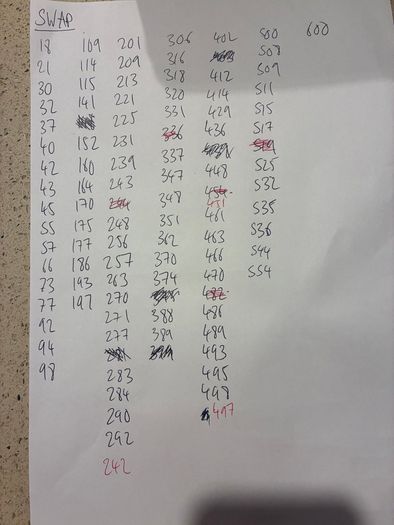 SWAP
18 109 201 306 402 500 600
21 114 209 316 508
30 115 213 318 412 509
32 141 221 320 414 511
37 225 331 429 515
40 152 231 336 436 517
42 160 239 337 519
43 164 243 347 448 525
45 170 244 348 454 532
451
55 175 248 351 461 535
57 177 256 362 463 536
66 186 257 370 466 544
73 193 263 374 470 554
77 197 270 482
92 271 388 486
94 277 389 489
98 493
283 495
284 498
290 497
292
242